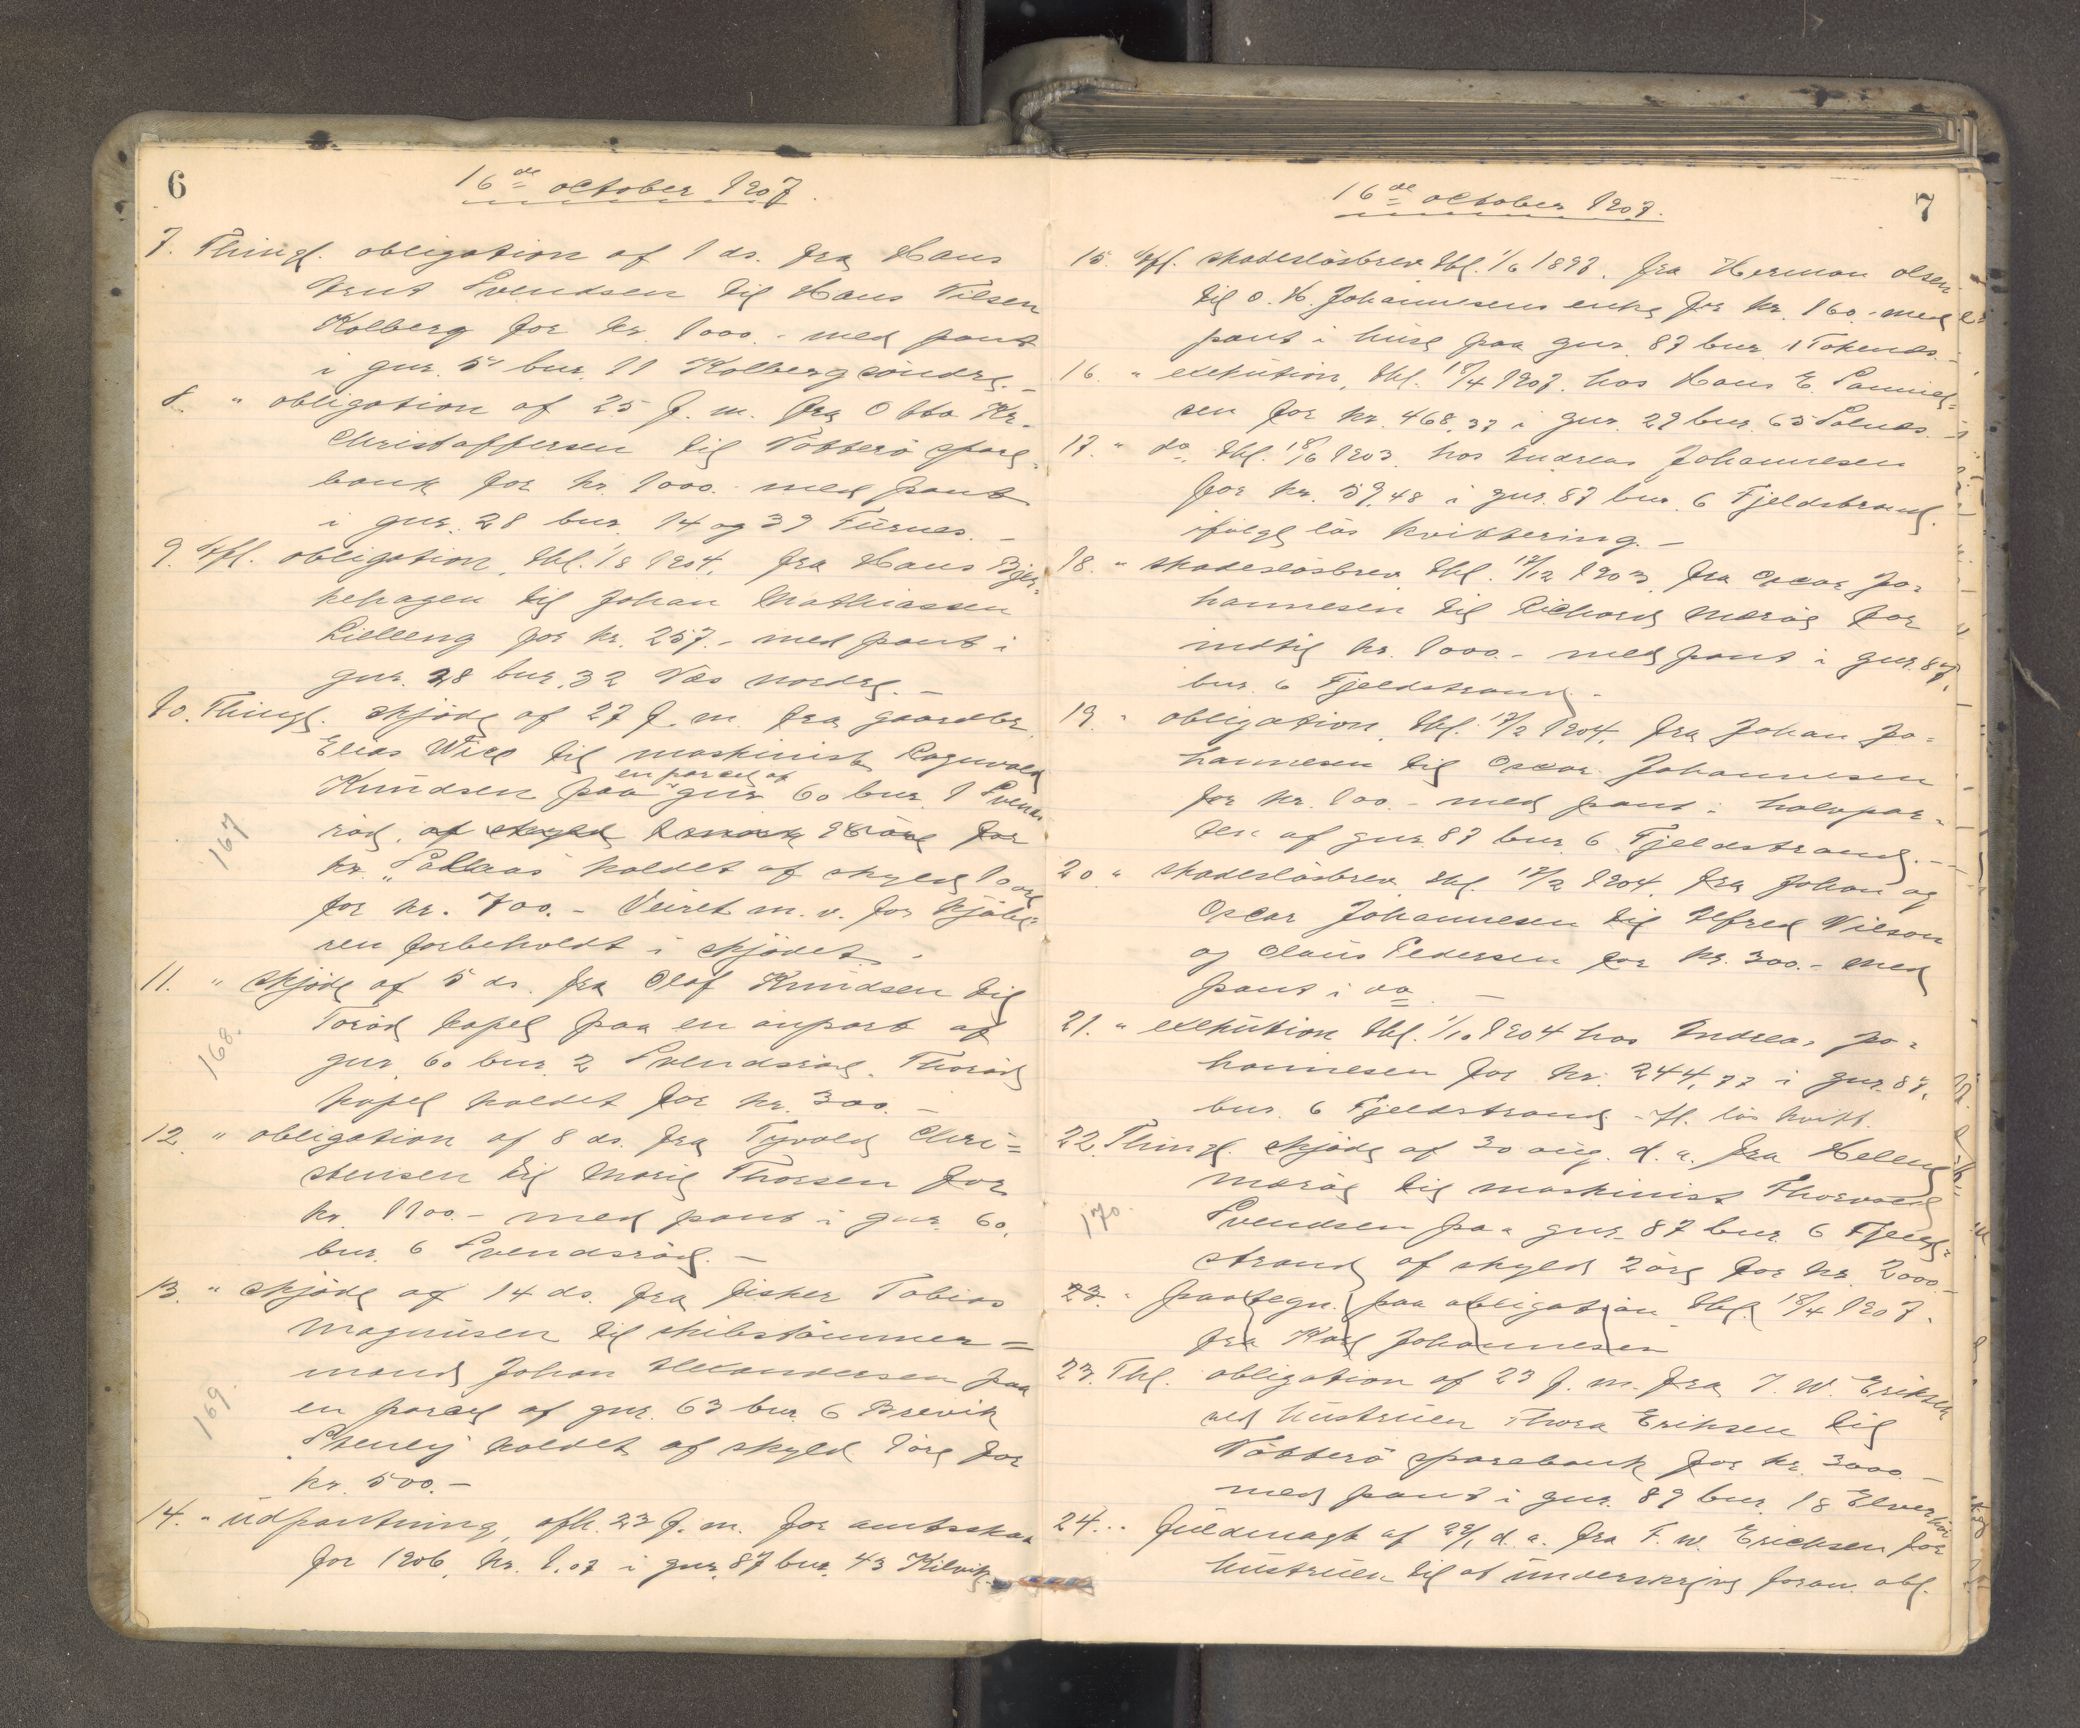 6
16de october 1907.
7. Thingl. obligation af 1 ds. fra Hans
Arnt Svendsen til Hans Nilsen
Kolberg for kr. 1000.- med pant
i gnr. 5 bnr. 11 Kolberg söndre. -
8. " obligation af 25 f. m. fra Otto Kr.
Christoffersen til Nötterö spare-
bank for kr. 1000.- med pant
i gnr. 28 bnr. 14 og 39 Furnes. -
9. Afl. obligation, thl. 1904, fra Hans Bjer-
kehagen til Johan Mathiassen
Lielleng for kr. 257.- med pant i
gnr. 28 bnr. 32 Næs nordre. -
10. Thingl. skjöde af 27 f. m. fra gaardbr.
Elias til maskinist Ragnvald
Knudsen paa en parcel af gnr 60 bnr. 1 Svends-
167
röd, af skyld for
kr. "Solaas" kaldet af skyld 10 öre
for kr. 700.- Veiret m. v. for kjöbe-
ren forbeholdt i skjödet. -
11. " skjöde af 5 ds. fra Olaf Knudsen til
Toröd kapel paa en anpart af
168.
gnr. 60 bnr. 2 Svendsröd. Thoröd
kapel kaldet for kr. 300. -
12. " obligation af 8 ds. fra Tyvald Chri-
stensen til Marie Thorsen for
kr. 1100.- med pant i gnr. 60,
bnr. 6 Svendsröd. -
13. " skjöde af 14 ds. fra fisker Tobias
Magnusen til skibstömmer-
mand Johan Alexandersen paa
169.
en parcel af gnr. 63 bnr. 6 Brevik
kaldet af skyld 1 öre for
kr. 500. -
14. " udpantning, afh. 23 f. m. for amtsskat
for 1906, kr. 1.07 i gnr. 87 bnr. 43 Kilvik.
7
16de october 1907.
15. Afl. skadeslösbrev thl. 1/6 1893, fra Herman Olsen
til O. H. Johannesens enke for kr. 160.- med
pant i huse paa gnr. 87 bnr. 1 Tokenæs. -
16. " exekution, thl. 1907, hos Hans E. Samuel-
sen for kr. 468,37 i gnr. 29 bnr. 65 Solnæs. -
17. " do., thl. 18/6 1903, hos Andreas Johannesen
for kr. 59,48 i gnr. 87 bnr. 6 Fjeldstrand.
ifölge lös kvittering. -
18. " skadeslösbrev thl. 17/12 1903, fra Oscar Jo-
hannesen til Richard Meröe for
indtil kr. 1000.- med pant i gnr. 87,
bnr. 6 Fjeldstrand. -
19. " obligation, thl. 17/2 1904, fra Johan Jo-
hannesen til Oscar Johannesen
for kr. 100.- med pant i halvpar-
ten af gnr. 87 bnr. 6 Fjeldstrand. -
20. " skadeslösbrev, thl. 17/2 1904, fra Johan og
Oscar Johannesen til Alfred Nilsen
og Claus Pedersen for kr. 300.- med
pant i do. -
21. " exekution thl. 1/10 1904 hos Andreas Jo-
hannesen for kr. 244,77 i gnr. 87,
bnr. 6 Fjeldstrand. - lös kvitt.
22. Thingl. skjöde af 30 aug. d. a. fra Hellene
Meröe til maskinist Thorvald
170.
Svendsen paa gnr. 87 bnr. 6 Fjeld-
strand af skyld 2 öre for kr. 2000. -
23. " paategn. paa obligation thl. 18/4 1907.
fra Karl Johannesen
23. Thl. obligation af 23 f. m. fra F. W. Eriksen
ved hustruen Thora Eriksen til
Nötterö sparebank for kr. 3000. -
med pant i gnr. 89 bnr. 18 Elverhöi
24. " fuldmagt af d. a. fra F. W. Ericksen for
hustruen til at underskrive foran. obl.